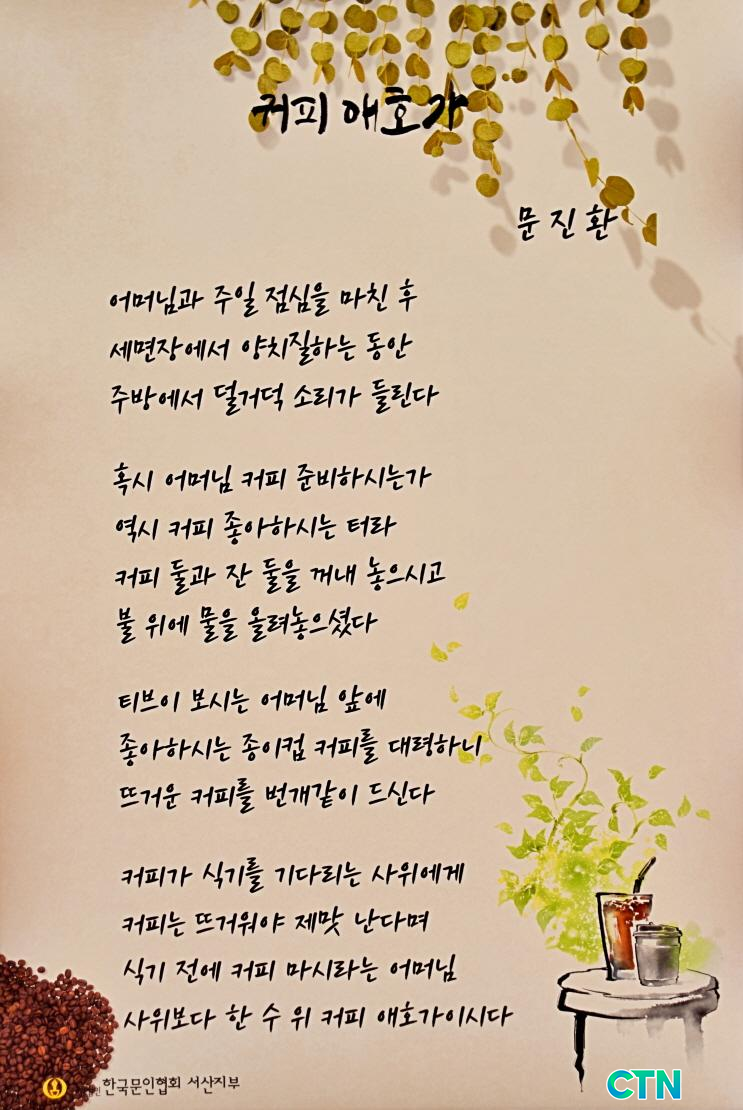 커피 애호가
문진환
어머님과 주일 점심을 마친 후
세면장에서 양치질하는 동안
주방에서 덜거덕 소리가 들린다
혹시 어머님 커피 준비하시는가
역시 커피 좋아하시는 터라
커피 둘과 잔 둘을 꺼내 놓으시고
불 위에 물을 올려놓으셨다
티브이 보시는 어머님 앞에
좋아하시는 종이컵 커피를 대령하니
뜨거운 커피를 번개같이 드신다
커피가 식기를 기다리는 사위에게
커피는 뜨거워야 제맛 난다며
식기 전에 커피 마시라는 어머님
사위보다 한 수 위 커피 애호가이시다
한국문인협회 서산지부
CTN